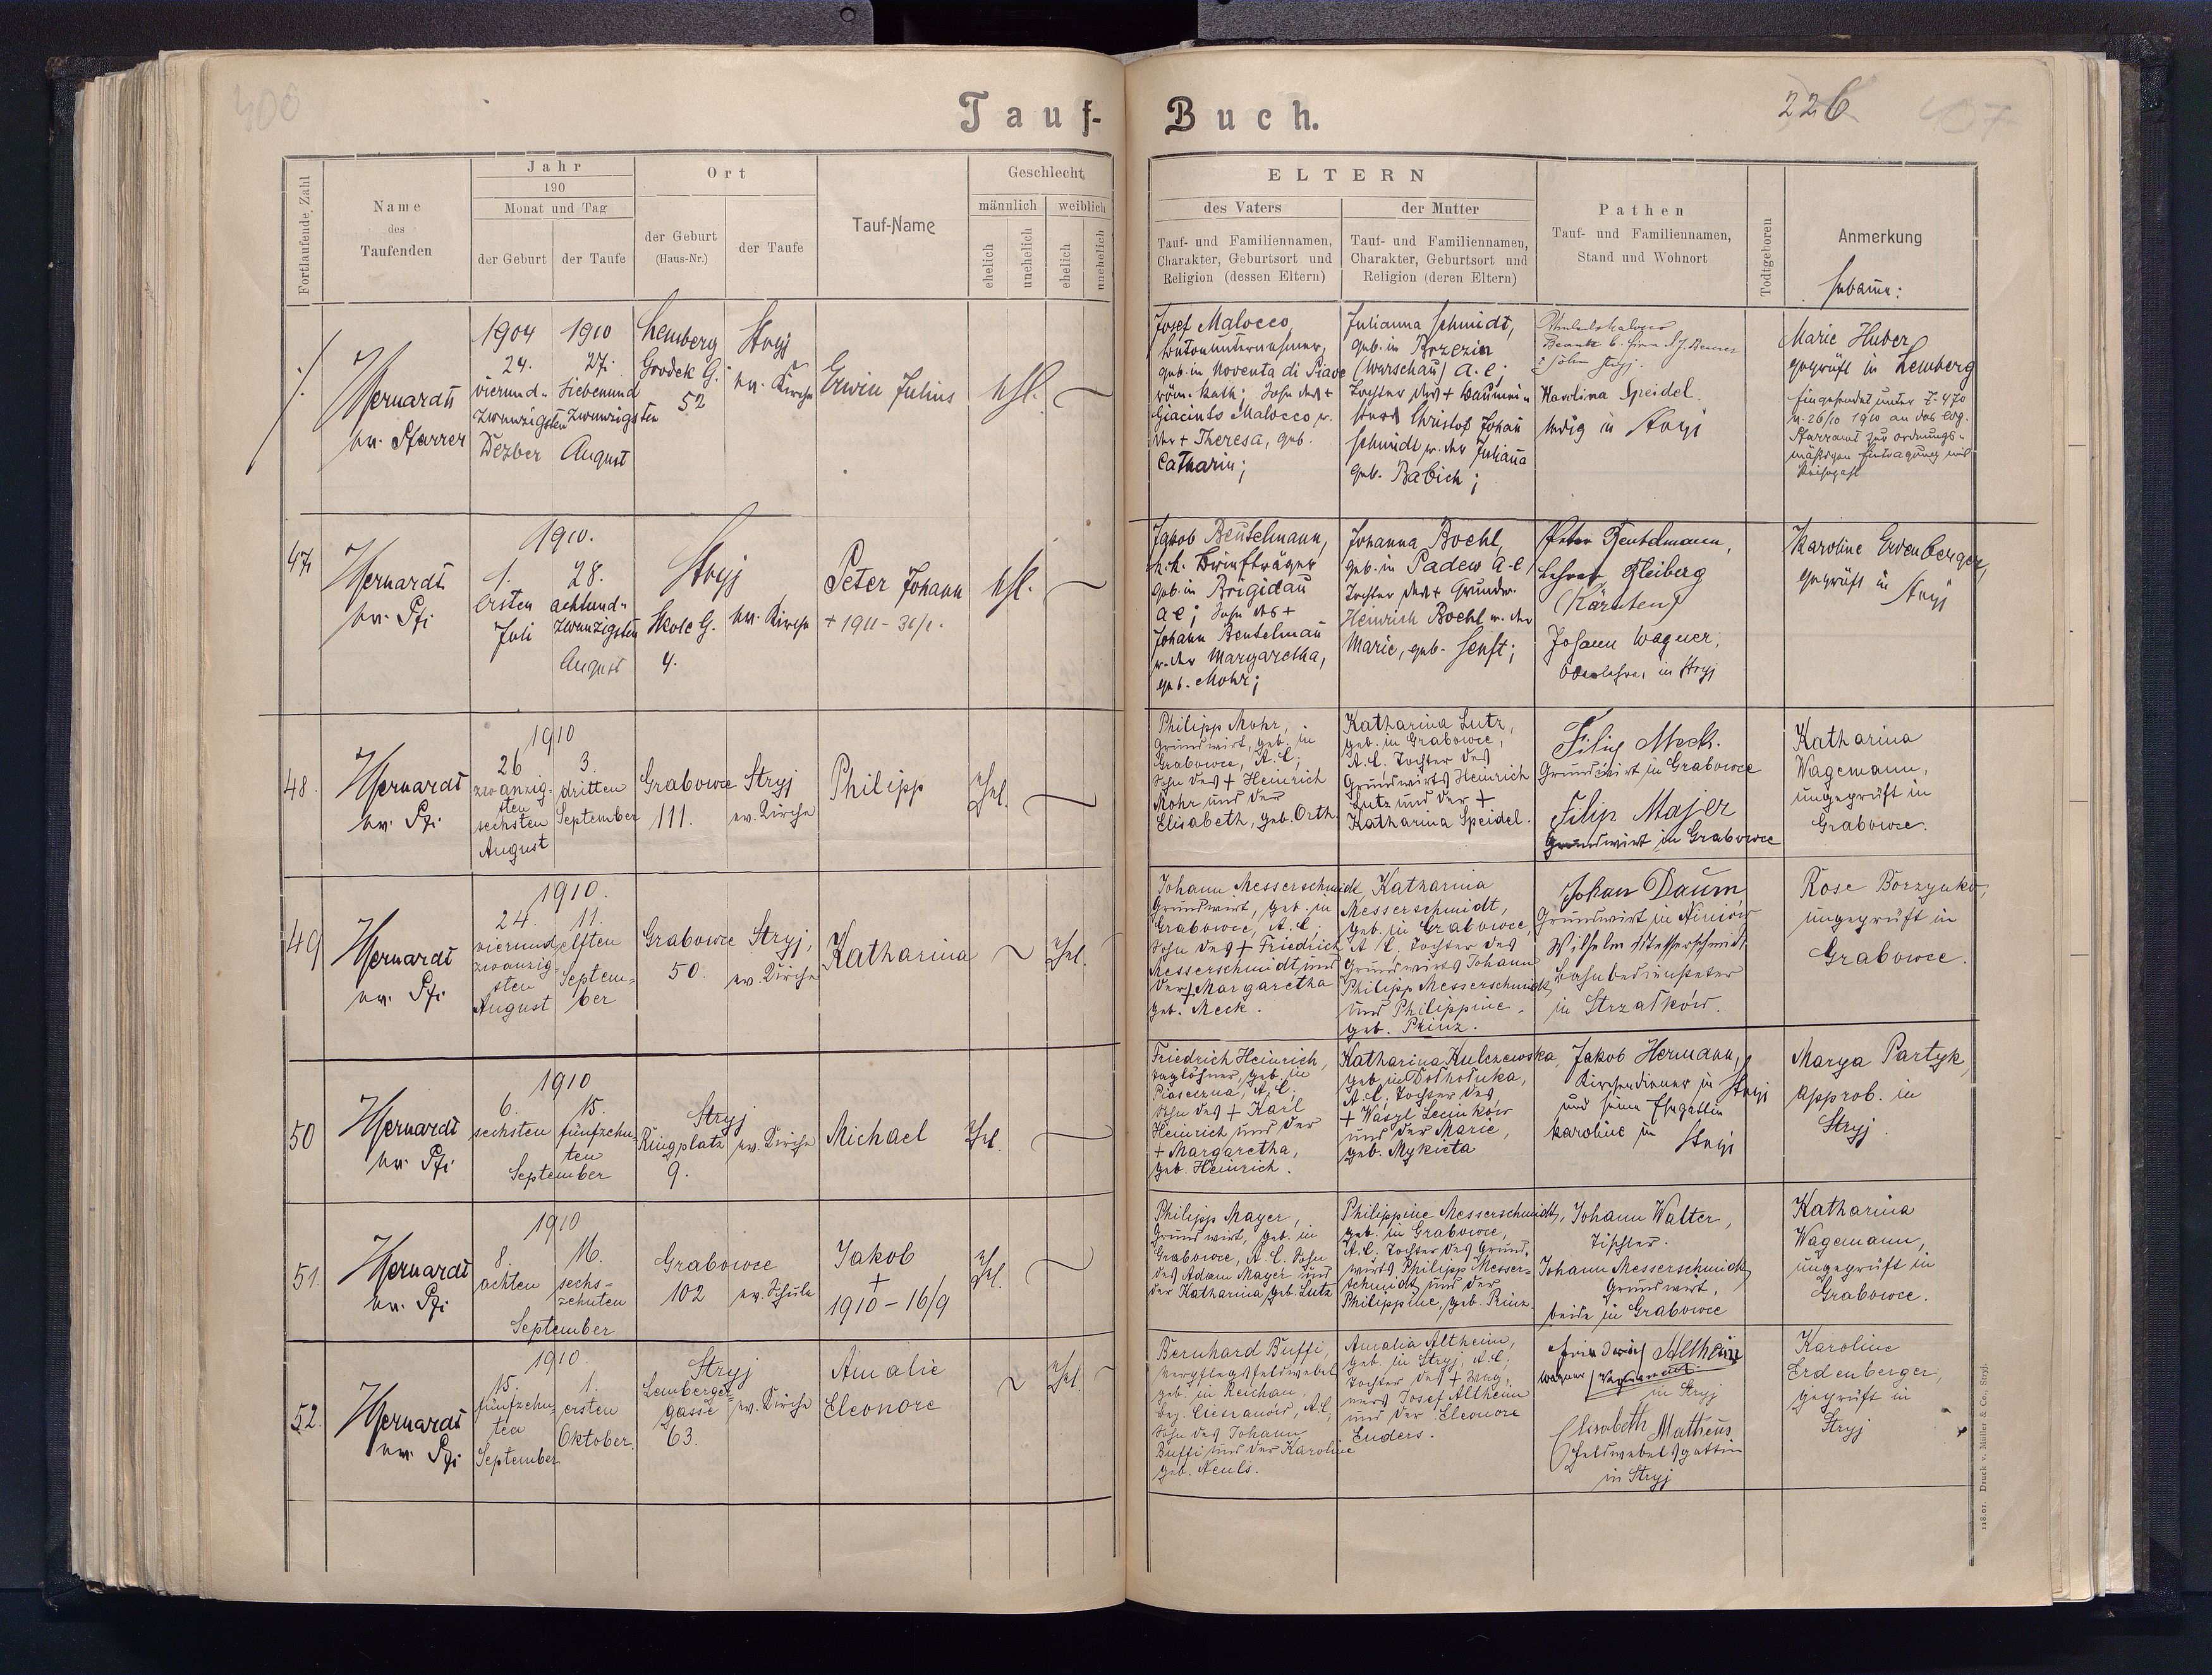 Tauf-Buch.
226
Fortlaufende Zahl
Name
des
Taufenden
Jahr
190
Monat und Tag
der Geburt
der Taufe
Ort
der Geburt
(Haus-Nr.)
der Taufe
Tauf-Name
Geschlecht
männlich
weiblich
ehelich
unehelich
ehelich
unehelich
ELTERN
des Vaters
Tauf- und Familiennamen,
Charakter, Geburtsort und
Religion (dessen Eltern)
der Mutter
Tauf- und Familiennamen,
Charakter, Geburtsort und
Religion (deren Eltern)
Pathen
Tauf- und Familiennamen,
Stand und Wohnort
Todtgeboren
Anmerkung
Hebamme:
ev. Pfarrer
1904
24.
vierund-
zwanzigsten
Dezber
1910
27.
siebenund
zwanzigsten
August
Lemberg
Grodek G.
52
Stryj
ev. Kirche
Erwin Julius
ehl.
Josef Malocco,
geb. in Noventa di Piave
röm. kath; Sohn des +
Giacinto Malocco u.
der + Theresa, geb.
Catharin;
Julianna Schmidt,
geb. in Brzezin
(Warschau) A. C;
Tochter des +
Christof Johan
Schmidt u. der Juliana
geb. Babich;
Karolina Speidel
ledig in Stryj
Marie Huber
geprüft in Lemberg
47
ev. Pfr
1910.
1.
ersten
Juli
28.
achtund-
zwanzigsten
August
Stryj
Skole G.
4.
ev. Kirche
Peter Johann
+ 1911
ehl.
Jakob Beutelmann,
k. k. Briefträger
geb. in Brigidau
A C; Sohn des +
Johann Beutelman
u. der Margaretha,
geb. Mohr;
Johanna Boehl,
geb. in Padew A. C
Tochter des + Grundw.
Heinrich Boehl u. der
Marie, geb. Senft;
Peter Beutelmann,
Lehrer, Bleiberg
(Kärnten)
Johann Wagner,
Oberlehrer in Stryj
Karoline Erdenberger,
geprüft in
Stryj
48.
ev. Pfr
1910
26
zwanzig-
sten
sechsten
August
3.
dritten
September
Grabowce
111.
Stryj
ev. Kirche
Philipp
Ehel.
Philipp Mohr,
Grundwirt, geb. in
Grabowce, A.C;
Sohn des + Heinrich
Mohr und der
Elisabeth, geb. Orth.
Katharina Lutz,
geb. in Grabowce,
A.C. Tochter des
Grundwirts Heinrich
Lutz und der +
Katharina Speidel.
Filip Meck.
Grundwirt in Grabowce
Filip Majer
Grundwirt in Grabowce
Katharina
Wagemann,
ungeprüft in
Grabowce.
49
ev. Pfr
1910.
24.
vierund
zwanzig-
sten
August
11.
elften
Septem-
ber
Grabowce
50.
Stryj,
ev. Kirche
Katharina
Ehel.
Johann Messerschmidt
Grundwirt, geb. in
Grabowce, A. C;
Sohn des + Friedrich
Messerschmidt und
der + Margaretha
geb. Meck.
Katharina
Messerschmidt,
geb. in Grabowce,
A C, Tochter des
Grundwirts Johann
Philipp Messerschmidt
und Philippine
geb. Prinz.
Johan Daum
Grundwirt in Niniów
Wilhelm Messerschmidt
Bahnbediensteter
in Strzałków.
Rose Borzynko,
ungeprüft in
Grabowce.
50
ev. Pfr
1910
6.
sechsten
15.
fünfzehn-
ten
September
Stryj
Ringplatz
9.
ev. Kirche
Michael
Ehel.
Friedrich Heinrich,
Taglöhner, geb. in
Piaseczna, A. C;
Sohn des + Karl
Heinrich und der
+ Margaretha,
geb. Heinrich.
Katharina Kulczewska,
A. C. Tochter des
und der Marie,
geb. Mykieta
Jakob Hermann,
Kirchendiener in Stryj
und seine Ehegattin
Karoline in Stryj
Marya Partyk,
approb. in
Stryj.
51.
ev. Pfr
1910
8.
achten
16.
sechs-
zehnten
September
Grabowce
102
ev. Schule
Jakob
+
1910 - 16/9
Ehl.
Philipp Mayer,
Grundwirt, geb. in
Grabowce, A. C. Sohn
des Adam Mayer und
der Katharina geb. Lutz
Philippine Messerschmidt,
geb. in Grabowce,
A.C. Tochter des Grund-
wirts Philipp Messer-
schmidt und der
Philippine, geb. Prinz.
Johann Walter,
Tischler.
Johann Messerschmidt,
Grundwirt,
beide in Grabowce
Katharina
Wagemann,
ungeprüft in
Grabowce.
52.
ev. Pfr
1910.
15.
fünfzehn-
ten
September
1.
ersten
Oktober.
Stryj
Lemberger-
gasse
63.
ev. Kirche
Amalie
Eleonore
Ehel.
Bernhard Buffi,
Verpflegsfeldwebel
geb. in Reichau,
Bez. Cieszanów, A.C,
Sohn des Johann
Buffi und der Karoline
geb. Neuls.
Amalia Altheim,
geb. in Stryj, A.C;
Tochter des + Wag-
ners Josef Altheim
und der Eleonore
Enders.
Friedrich Altheim
in Stryj
Elisabeth Matheus
Feldwebelsgattin
in Stryj
Karoline
Erdenberger,
geprüft in
Stryj
118.01. Druck v. Müller & Co., Stryj.